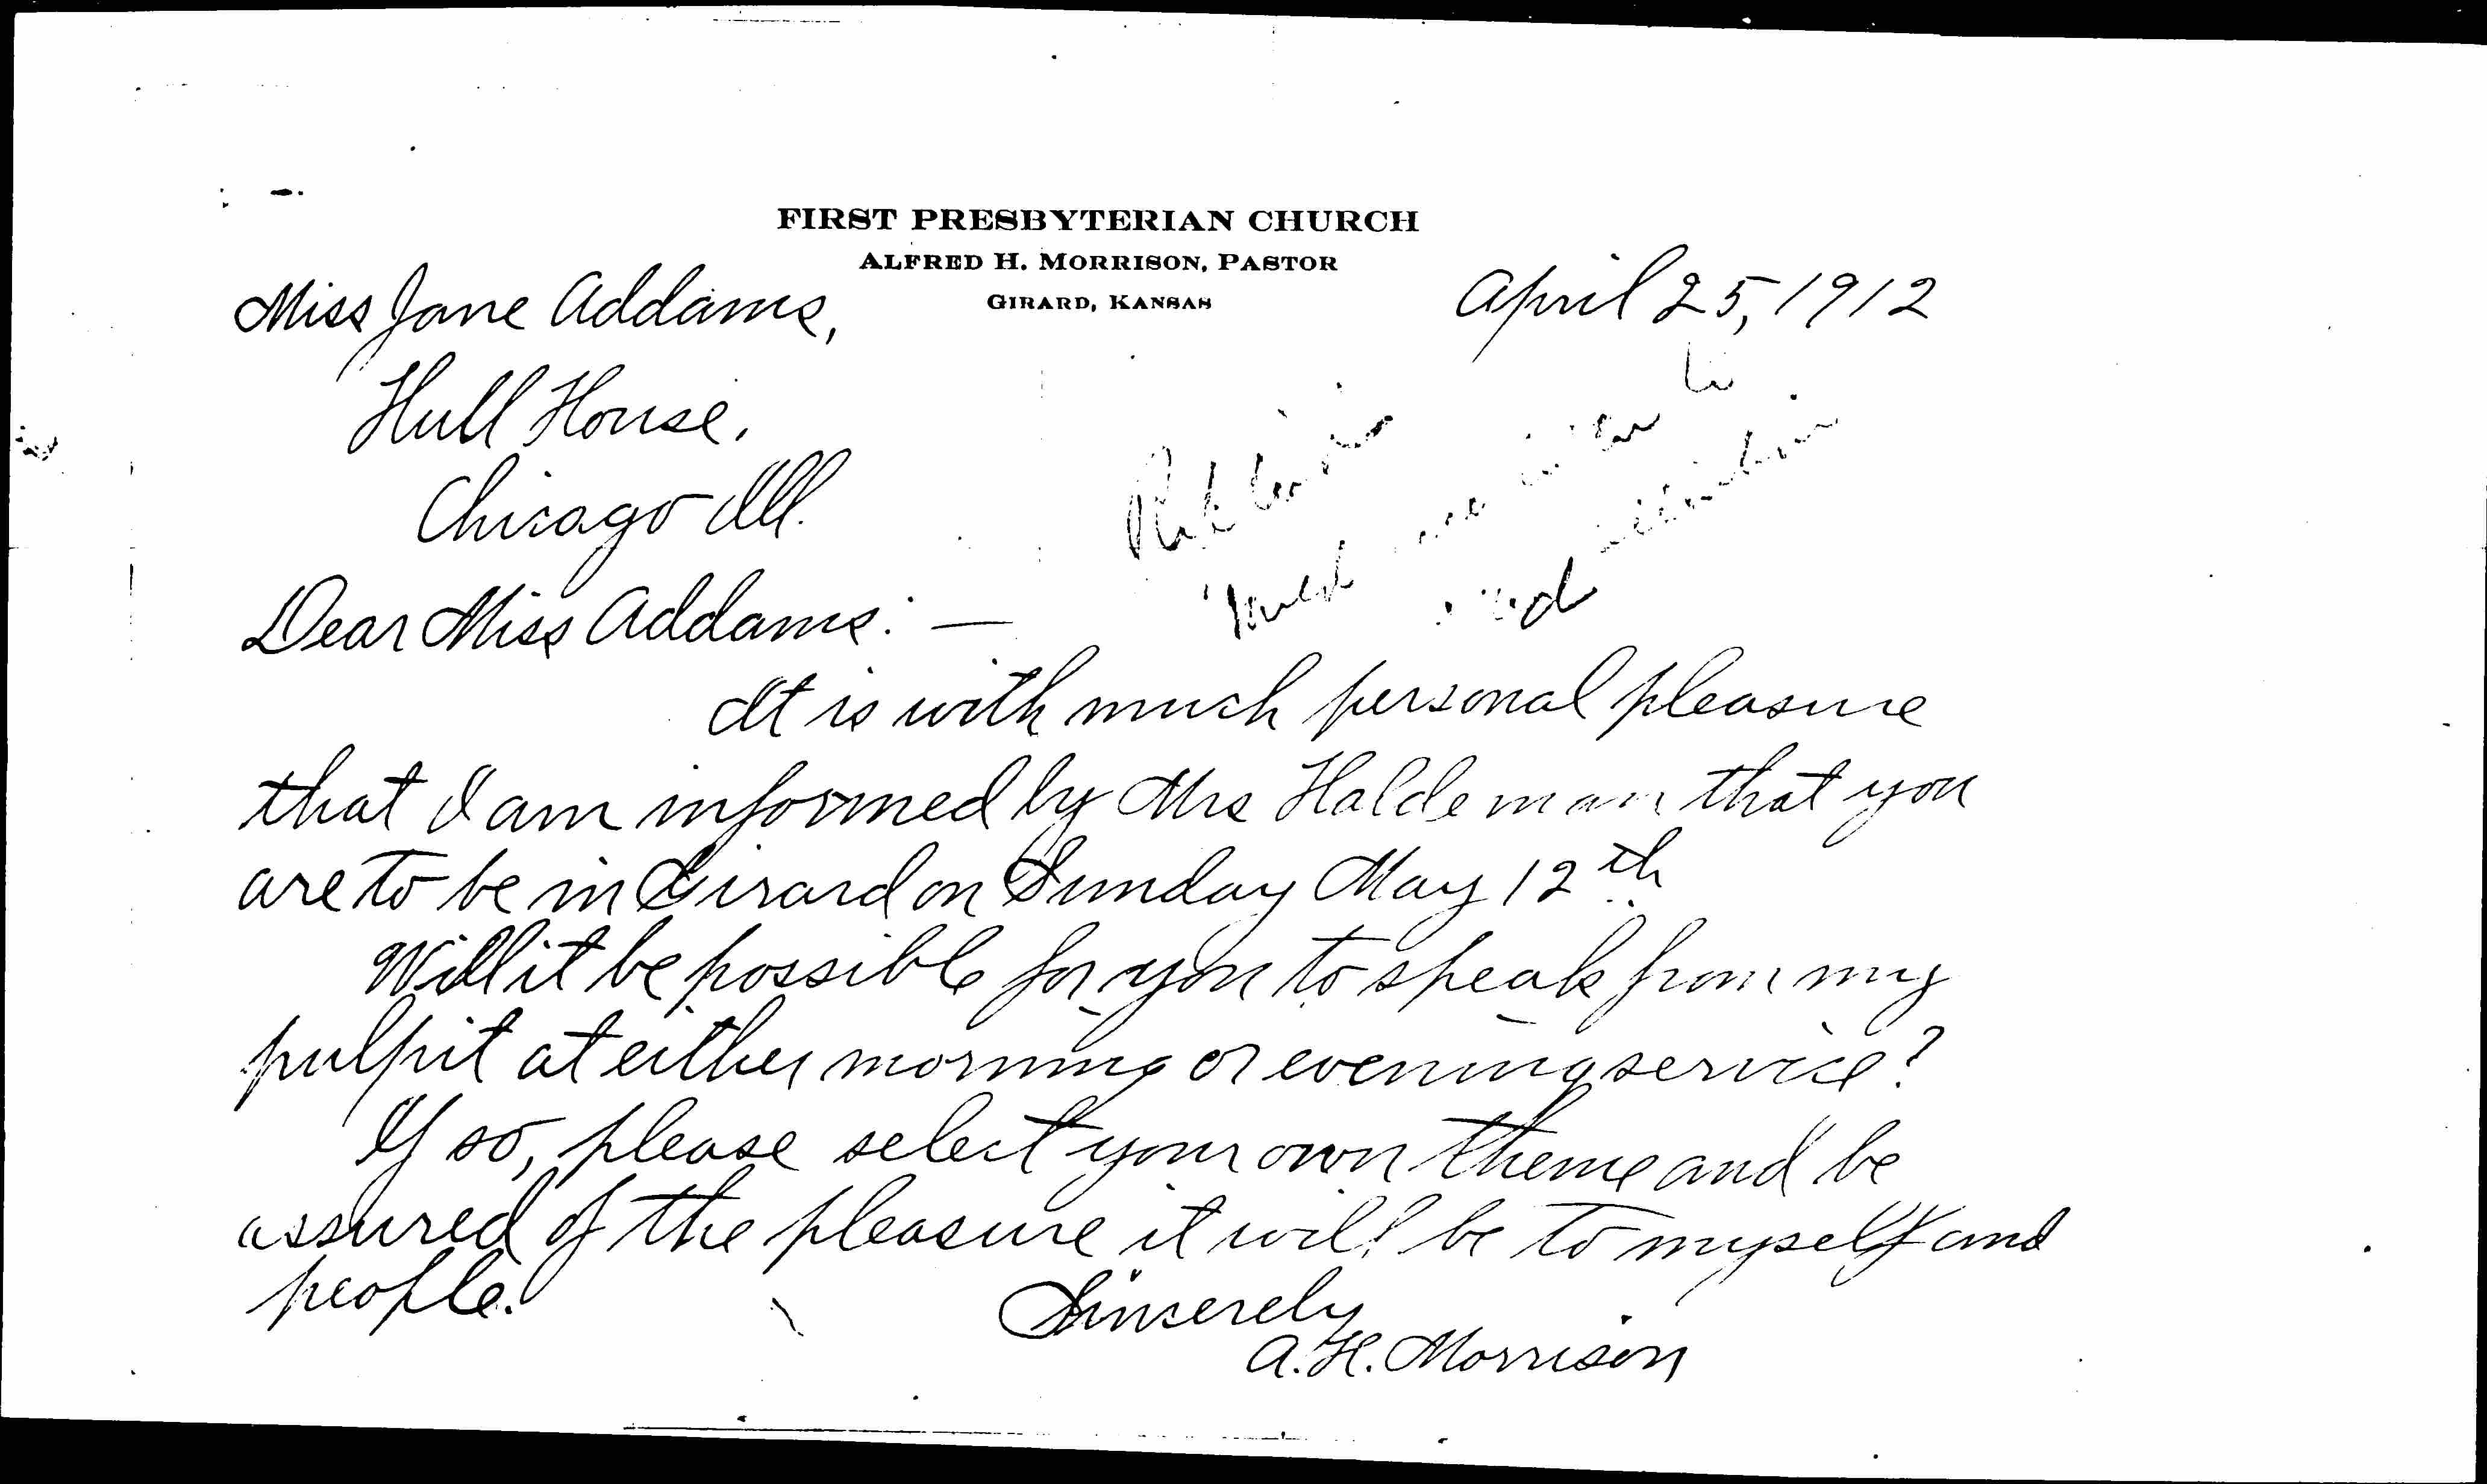 FIRST PRESBYTERIAN CHURCH
ALFRED H. MORRISON, PASTOR
GIRARD, KANSAS
April 25, 1912
Miss Jane Addams,
Hull House,
Chicago Ill.
Dear Miss Addams: —
It is with much personal pleasure
that I am informed by Mrs Haldeman that you
are to be in Girard on Sunday May 12th
Will it be possible for you to speak from my
pulpit at either morning or evening service?
If so, please select your own theme and be
assured of the pleasure it will be to myself and
people.
Sincerely
A. H. Morrison